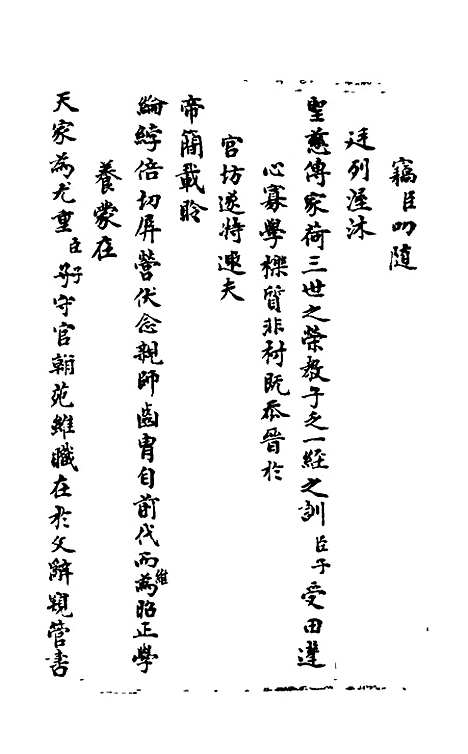 竊臣叨隨
廷列渥沐
聖慈傳家荷三世之榮教子乏一經之訓臣子受田選
心寡學櫟質非材既忝晉於
官坊遂特速夫
帝簡載聆
綸綍倍切屏營伏念親師齒冑自前代而為維昭正學
養蒙在
天家為尤重臣子守官翰苑雖職在於文辭窺管書